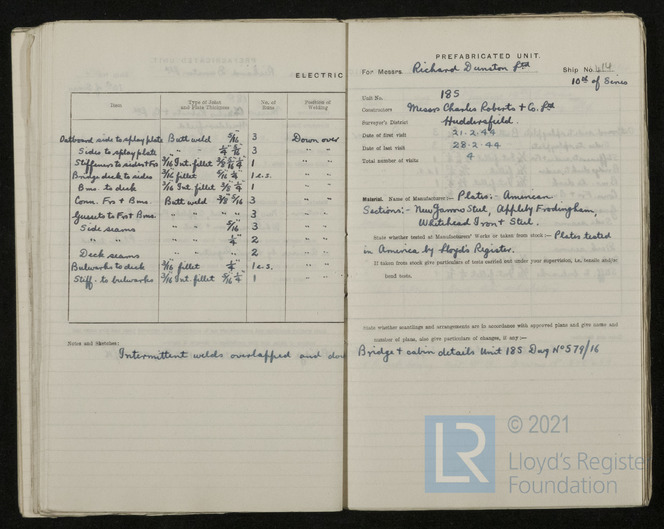 ELECTRIC
Item Type of Joint and Plate Thickness No. of Runs Position of Welding
Outboard side to splay plate Butt weld 5/16" 3 Down over
Sides to splay plate " " 1/4" 5/16" 3 " "
Stiffeners to sides + Frs 3/16 Int. fillet 3/8 5/16 1/4 1 " "
Bridge deck to sides 3/16 fillet 5/16 1/4 1 e.s. " "
Bms. to deck 3/16 Int. fillet 3/8 1/4 1 " "
Conn. Frs + Bms. Butt weld 3/8 5/16 3 " "
Gussets to Frs + Bms. " " 3 " "
Side seams " " 5/16 3 " "
" " " " 1/4" 2 " "
Deck seams " " " 2 " "
Bulwarks to deck 3/16 fillet 1/4" 1 e.s. " "
Stiff. to bulwarks 3/16 Int. fillet 5/16 1/4 1 " "
Notes and Sketches:
Intermittent welds overlapped and
PREFABRICATED UNIT.
For Messrs. Richard Dunston Ltd Ship No. 414
10th of Series
Unit No. 185
Constructors Messrs Charles Roberts & Co. Ltd
Surveyor's District Huddersfield.
Date of first visit 21.2.44
Date of last visit 28.2.44
Total number of visits 4
Material. Name of Manufacturer:- Plates:- American
Sections:- New Jarrow Steel, Appleby Frodingham,
Whitehead Iron & Steel.
State whether tested at Manufacturers' Works or taken from stock:- Plates tested
in America by Lloyd's Register.
If taken from stock give particulars of tests carried out under your supervision, i.e. tensile and/or
bend tests.
State whether scantlings and arrangements are in accordance with approved plans and give name and
number of plans, also give particulars of changes, if any:-
Bridge + cabin details Unit 185 Dwg No 579/16
© 2021
LR Lloyd's Register
Foundation